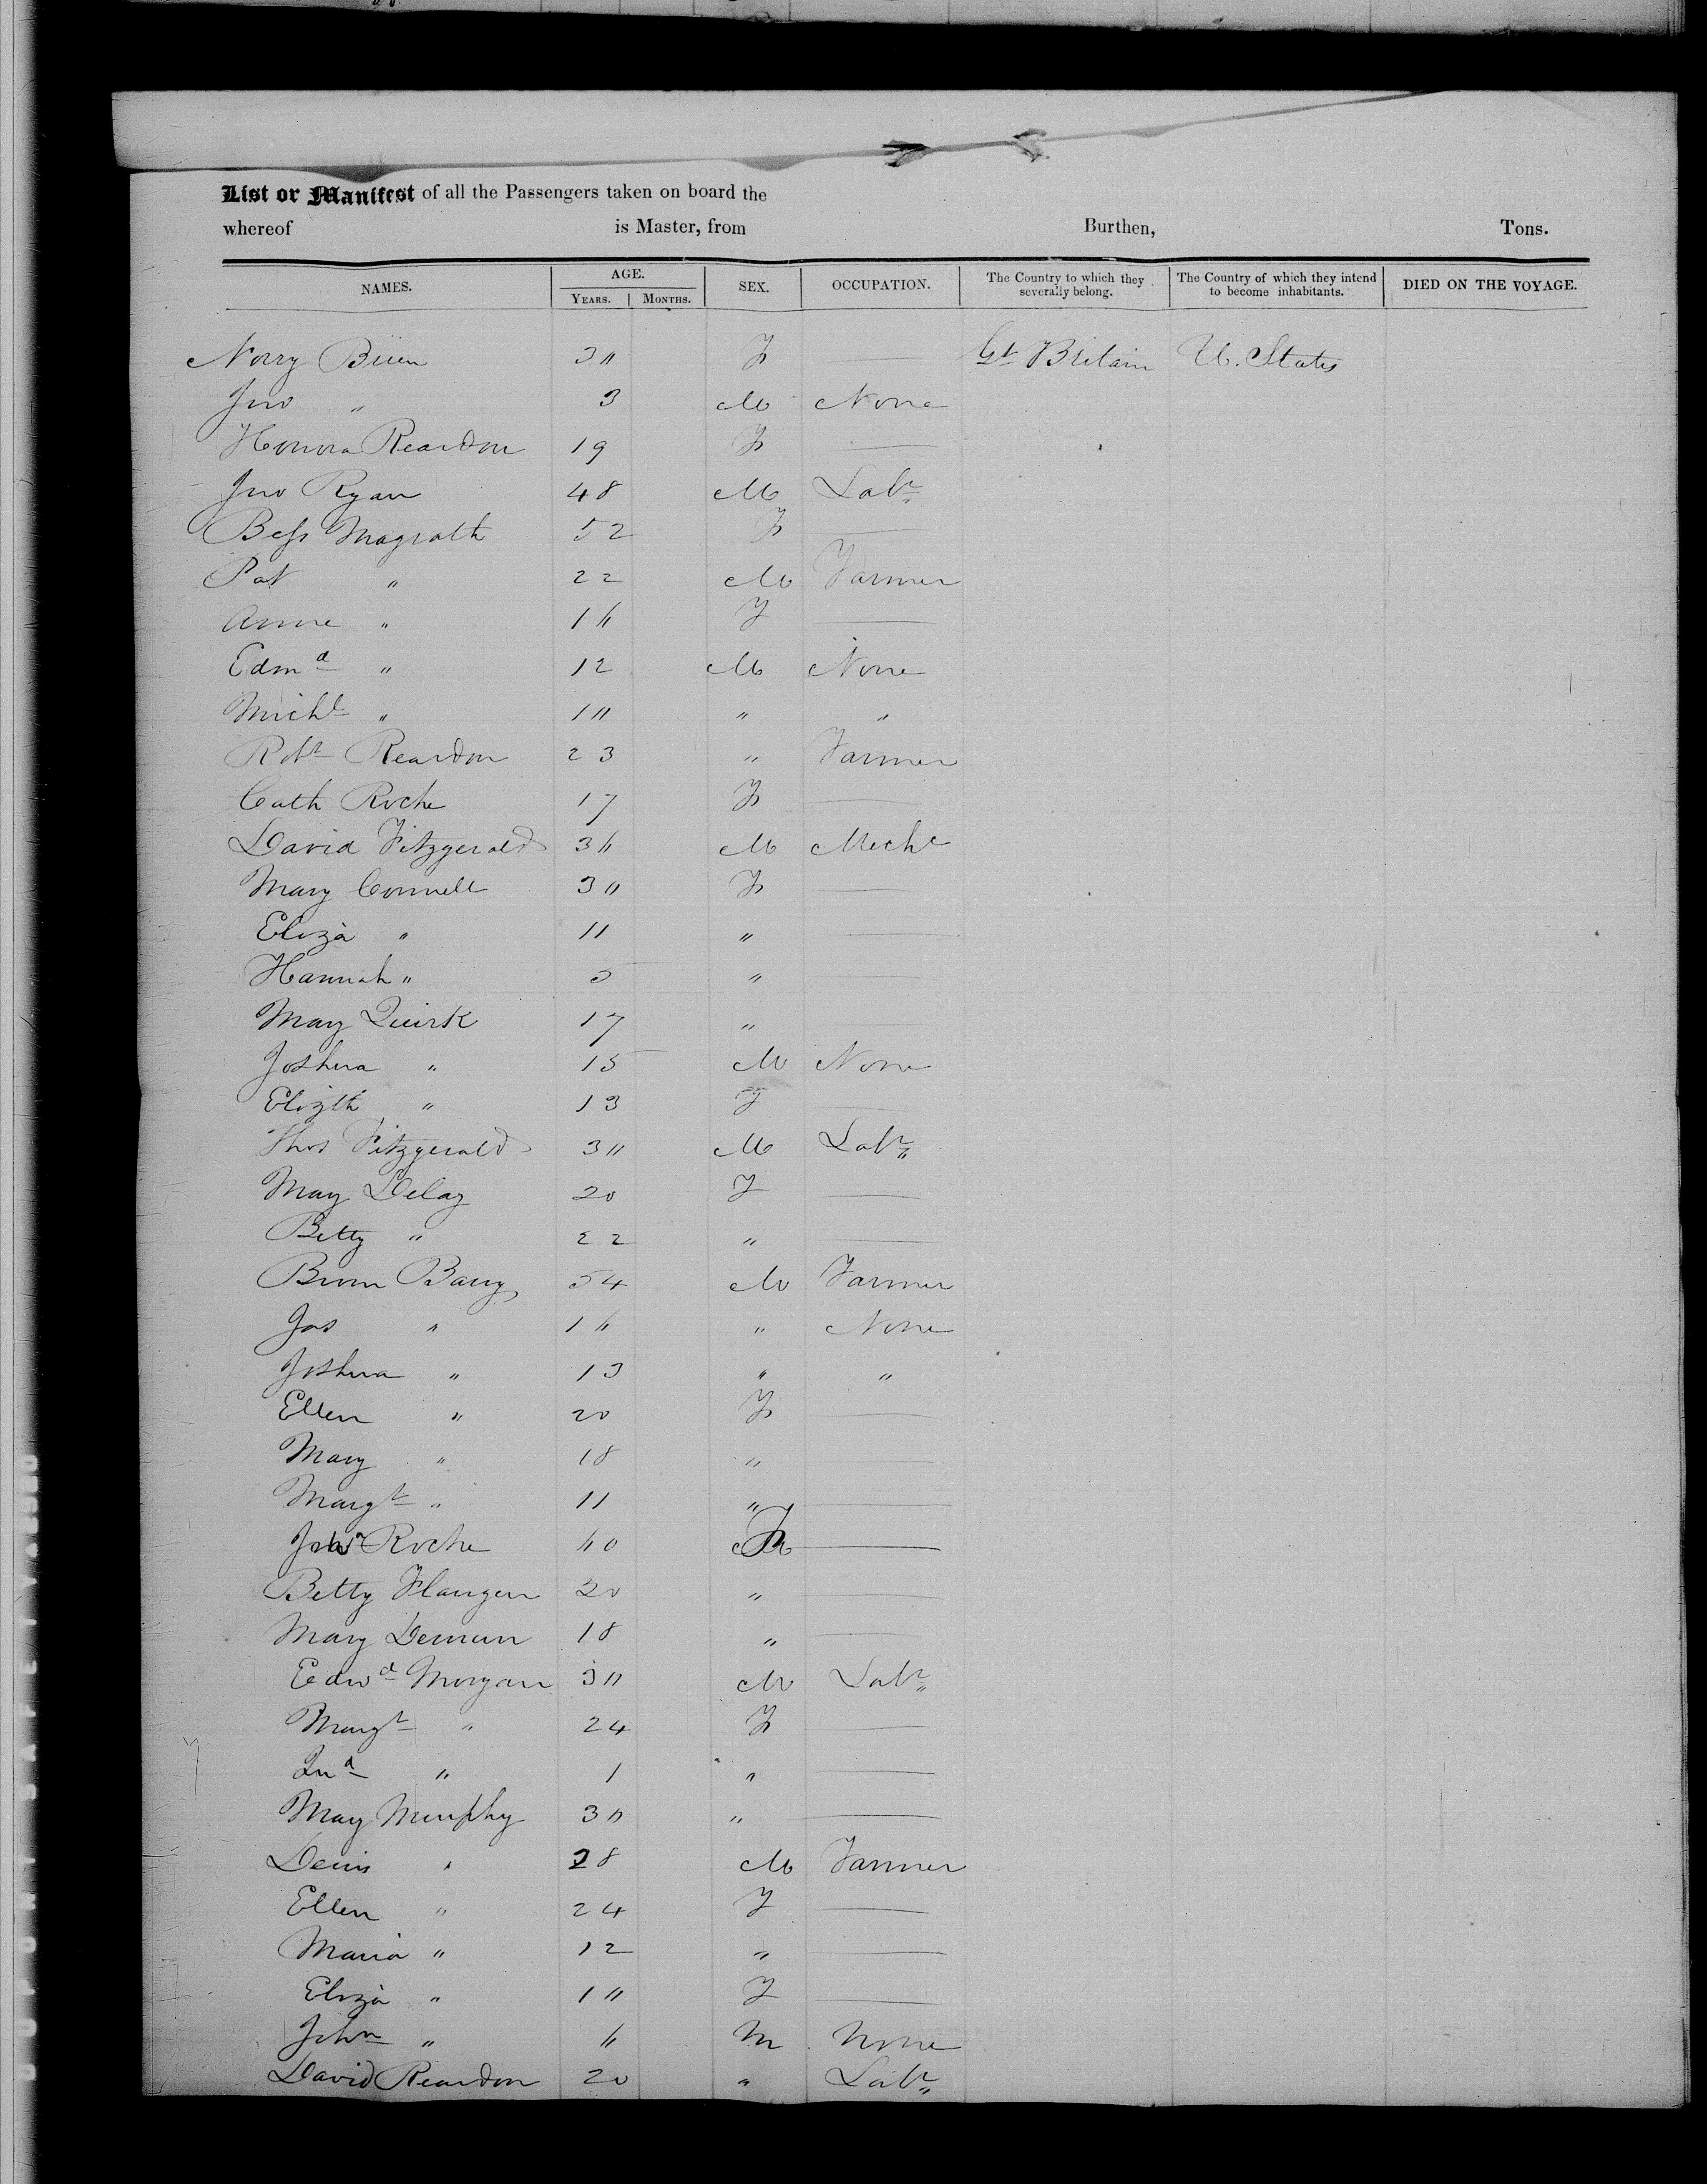 List or Manifest of all the Passengers taken on board the
whereof is Master, from Burthen, Tons.
NAMES. AGE. YEARS. MONTHS. SEX. OCCUPATION. The Country to which they severally belong. The Country of which they intend to become inhabitants. DIED ON THE VOYAGE.
Norry 30 F — Gt Britain U. States
Jno " 3 M None
Honora Reardon 19 F —
Jno Ryan 48 M Labr
Bess Magrath 52 F —
Pat " 22 M Farmer
Anne " 16 F —
Edmd " 12 M None
Michl " 10 " "
Robt Reardon 23 " Farmer
Cath Roche 17 F —
David Fitzgerald 36 M Mechc
Mary Connell 30 F —
Eliza " 11 " —
Hannah " 5 " —
Mary Quirk 17 " —
Joshua " 15 M None
Elizth " 13 F —
Thos Fitzgerald 30 M Labr
Mary Delay 20 F —
Betty " 22 " —
Barry 54 M Farmer
Jas " 16 " None
Joshua " 13 " "
Ellen " 20 F —
Mary " 18 " —
Margt " 11 " —
Roche 60 F —
Betty Flangen 20 " —
Mary 18 " —
Edwd Morgan 30 M Labr
Margt " 24 F —
" 1 " —
Mary Murphy 30 " —
Denis " 28 M Farmer
Ellen " 24 F —
Maria " 12 " —
Eliza " 10 F —
John " 6 M None
David Reardon 20 " Labr